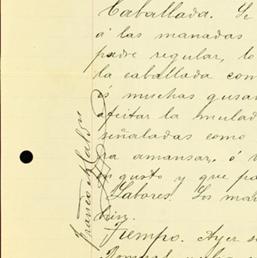 Caballada. Se
á las manadas
padre regular, lo
la caballada com
és muchas gusan
afeitar la mulad
señaladas como
ra amansar, ó v
su gusto y que pa
Labores. Los mai
bien.
Tiempo. Ayer s